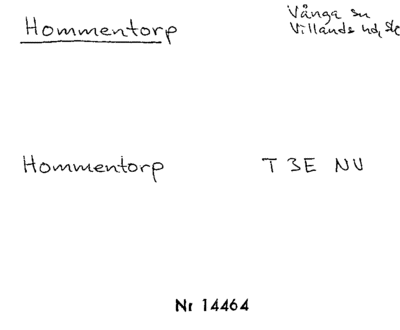 Hommentorp
Vånga sn
Villands hd, Sk
Hommentorp T 3E NV
Nr 14464